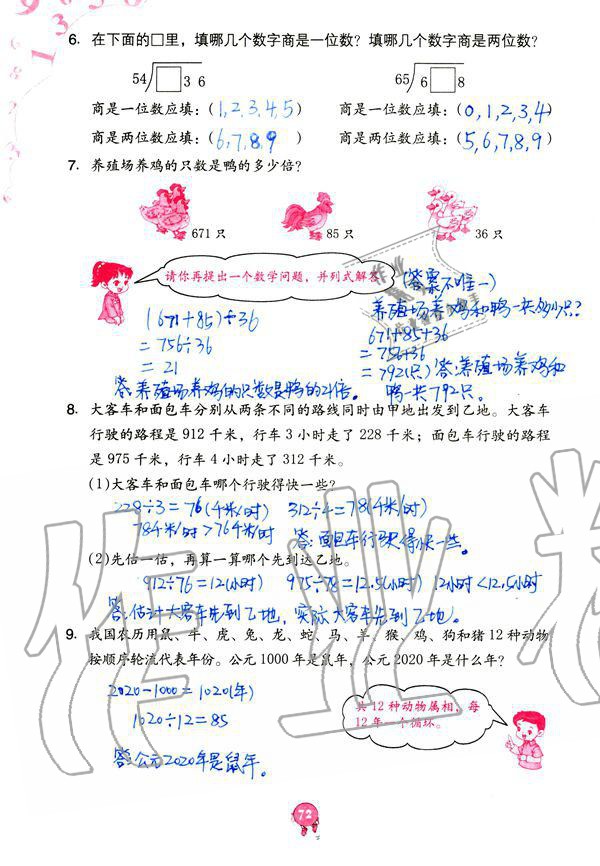 6. 在下面的□里，填哪几个数字商是一位数？填哪几个数字商是两位数？
54 □ 3 6 65 6 □ 8
商是一位数应填：(1,2,3,4,5) 商是一位数应填：(0,1,2,3,4)
商是两位数应填：(6,7,8,9) 商是两位数应填：(5,6,7,8,9)
7. 养殖场养鸡的只数是鸭的多少倍？
671 只 85 只 36 只
请你再提出一个数学问题，并列式解答。
(答案不唯一)
养殖场养鸡和鸭一共多少只?
(671+85)÷36
=756÷36
=21
671+85+36
=756+36
=792(只) 答:养殖场养鸡和
鸭一共792只。
答:养殖场养鸡的只数是鸭的21倍。
8. 大客车和面包车分别从两条不同的路线同时由甲地出发到乙地。大客车
行驶的路程是 912 千米，行车 3 小时走了 228 千米；面包车行驶的路程
是 975 千米，行车 4 小时走了 312 千米。
(1)大客车和面包车哪个行驶得快一些？
228÷3=76(千米/时) 312÷4=78(千米/时)
78千米/时>76千米/时 答:面包车行驶得快一些。
(2)先估一估，再算一算哪个先到达乙地。
912÷76=12(小时) 975÷78=12.5(小时) 12小时<12.5小时
答:估计大客车先到乙地,实际大客车先到乙地。
9. 我国农历用鼠、牛、虎、兔、龙、蛇、马、羊、猴、鸡、狗和猪 12 种动物
按顺序轮流代表年份。公元 1000 年是鼠年，公元 2020 年是什么年？
2020-1000=1020(年)
1020÷12=85
答:公元2020年是鼠年。
共 12 种动物属相，每
12 年一个循环。
72